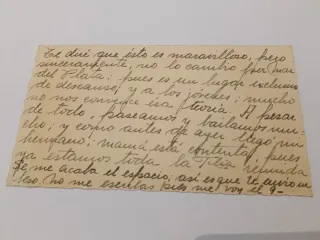 Te diré que ésto es maravilloso, pero
sinceramente, no lo cambio por Mar
del Plata; pues es un lugar exclusivo
de descanso; y a los jóvenes; mucho
no nos convence esa teoría. A pesar
de todo, paseamos y bailamos mu-
cho; y como antes de ayer llegó mi
hermano; mamá está contenta, pues
ya estamos toda la reunida
Se me acaba el espacio; así es que te envío un
beso. No me escribas pues me voy el 9-